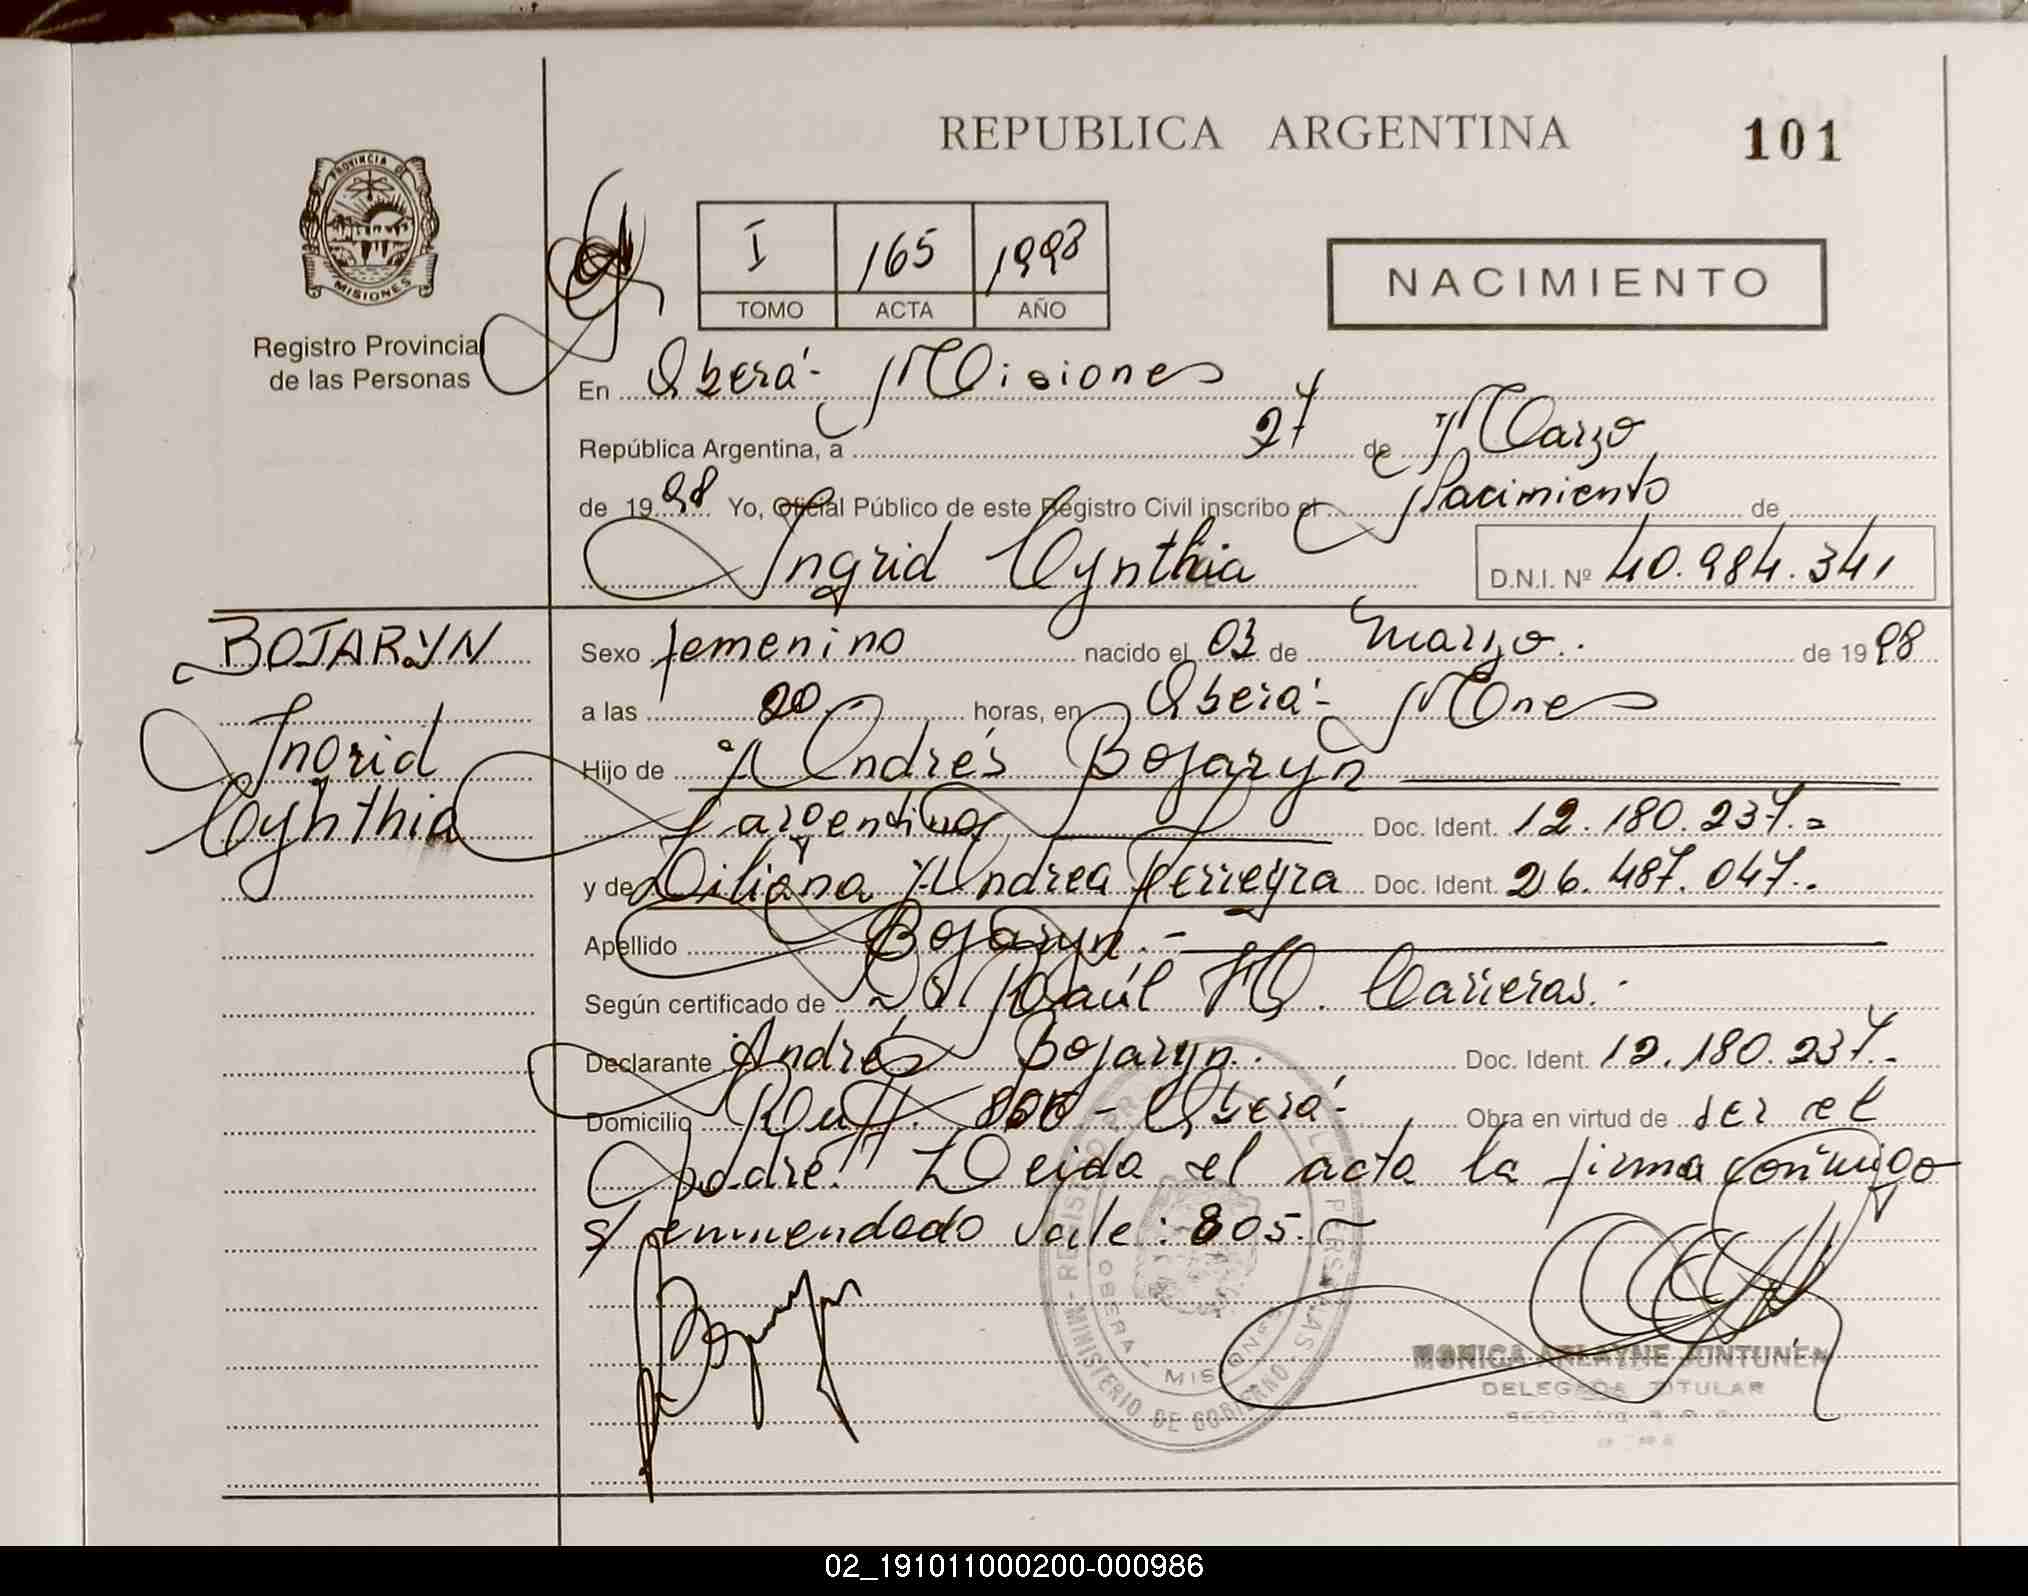 REPUBLICA ARGENTINA
101
PROVINCIA DE
MISIONES
Registro Provincial
de las Personas
I 165 1998
TOMO ACTA AÑO
NACIMIENTO
En Oberá - Misiones
República Argentina, a 27 de Marzo
de 1998 Yo, Oficial Público de este Registro Civil inscribo el Nacimiento de
Ingrid Cynthia D.N.I. Nº 40.984.341
BOJARYN
Ingrid
Cynthia
Sexo femenino nacido el 03 de marzo. de 1998
a las 20 horas, en Oberá - Mnes
Hijo de Andrés Bojaryn
argentino Doc. Ident. 12.180.237.-
y de Liliana Andrea Ferreyra Doc. Ident. 26.487.047.
Apellido Bojaryn.-
Según certificado de Dr. Raúl Carreras.-
Declarante Andrés Bojaryn. Doc. Ident. 12.180.237.-
Domicilio - Oberá- Obra en virtud de ser el
padre. Leida el acta la firma conmigo
s/ enmendado vale: 805.-
REGISTRO PROVINCIAL DE LAS PERSONAS
OBERA - MISIONES
MINISTERIO DE GOBIERNO
MONICA ARLAYNE JUNTUNEN
DELEGADA TITULAR
02_191011000200-000986